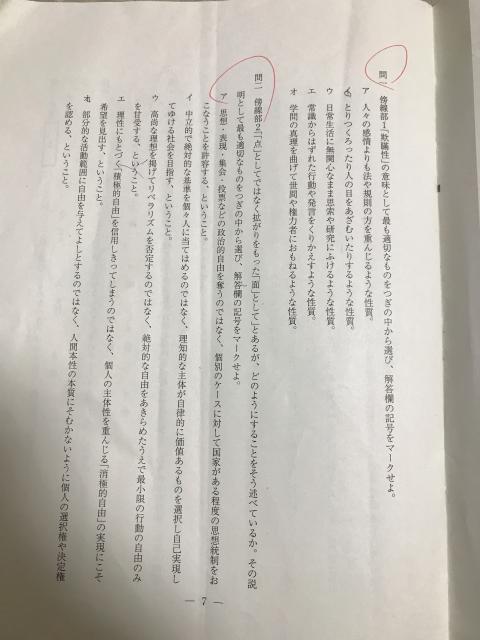 問一 傍線部1「欺瞞性」の意味として最も適切なものをつぎの中から選び、解答欄の記号をマークせよ。
ア 人々の感情よりも法や規則の方を重んじるような性質。
イ とりつくろったり人の目をあざむいたりするような性質。
ウ 日常生活に無関心なまま思索や研究にふけるような性質。
エ 常識からはずれた行動や発言をくりかえすような性質。
オ 学問の真理を曲げて世間や権力者におもねるような性質。
問二 傍線部2「「点」としてではなく拡がりをもった「面」として」とあるが、どのようにすることをそう述べているか。その説
明として最も適切なものをつぎの中から選び、解答欄の記号をマークせよ。
ア 思想・表現・集会・投票などの政治的自由を奪うのではなく、個別のケースに対して国家がある程度の思想統制をお
こなうことを許容する、ということ。
イ 中立的で絶対的な基準を個々人に当てはめるのではなく、理知的な主体が自律的に価値あるものを選択し自己実現し
てゆける社会を目指す、ということ。
ウ 高尚な理想を掲げてリベラリズムを否定するのではなく、絶対的な自由をあきらめたうえで最小限の行動の自由のみ
を甘受する、ということ。
エ 理性にもとづく「積極的自由」を信用しきってしまうのではなく、個人の主体性を重んじる「消極的自由」の実現にこそ
希望を見出す、ということ。
オ 部分的な活動範囲に自由を与えてよしとするのではなく、人間本性の本質にそむかないように個人の選択権や決定権
を認める、ということ。
— 7 —